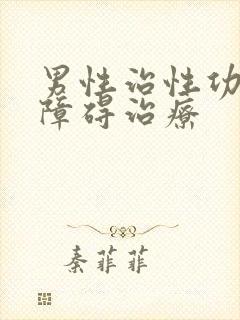 男性治性功
障碍治療
秦菲菲